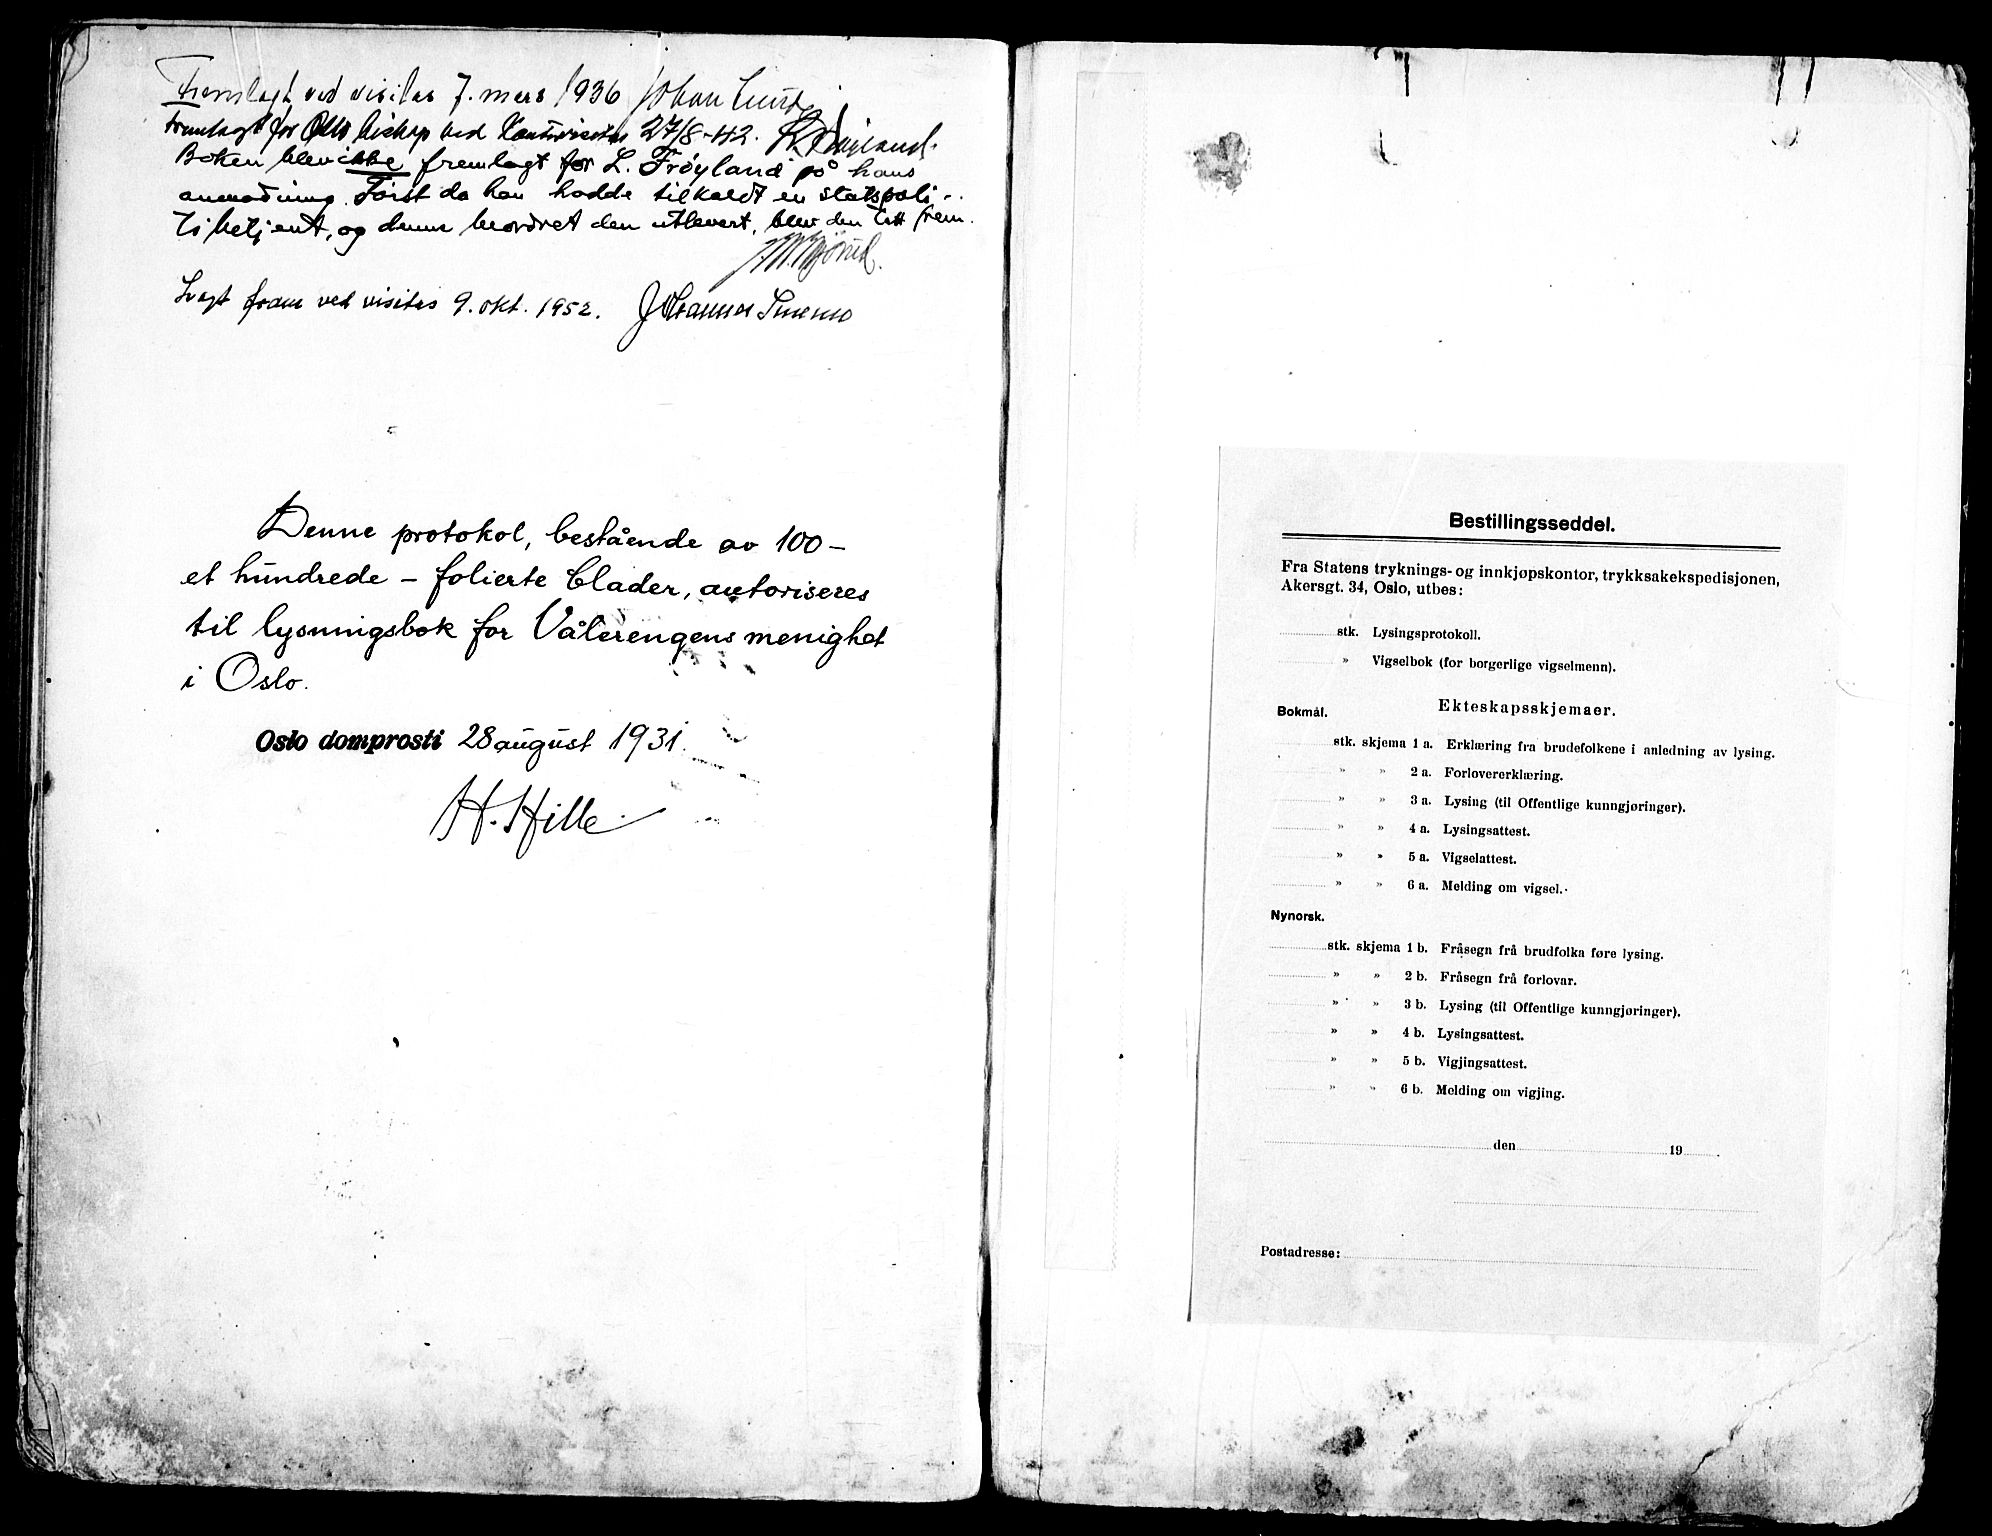 Fremlagt ved visitas 7. mars 1936 Johan Lunde
Fremlagt for Oslo biskop ved 27/8-42. L. Frøyland.
Boken blev ikke fremlagt for L. Frøyland på hans
anmodning. Først da han hadde tilkaldt en statspoli-
tibetjent, og denne beordret den utlevert, blev den tatt frem.
Lagt fram ved visitas 9. okt. 1952. Johannes Smemo
Denne protokol, bestående av 100 –
et hundrede – folierte blader, autoriseres
til lysningsbok for Vålerengens menighet
i Oslo.
Oslo domprosti 28 august 1931.
H. Hille.
Bestillingsseddel.
Fra Statens tryknings- og innkjøpskontor, trykksakekspedisjonen,
Akersgt. 34, Oslo, utbes:
stk. Lysingsprotokoll.
» Vigselbok (for borgerlige vigselmenn).
Ekteskapsskjemaer.
Bokmål.
stk. skjema 1 a. Erklæring fra brudefolkene i anledning av lysing.
» » 2 a. Forlovererklæring.
» » 3 a. Lysing (til Offentlige kunngjøringer).
» » 4 a. Lysingsattest.
» » 5 a. Vigselattest.
» » 6 a. Melding om vigsel.
Nynorsk.
stk. skjema 1 b. Fråsegn frå brudfolka føre lysing.
» » 2 b. Fråsegn frå forlovar.
» » 3 b. Lysing (til Offentlige kunngjøringer).
» » 4 b. Lysingsattest.
» » 5 b. Vigjingsattest.
» » 6 b. Melding om vigjing.
den 19 .
Postadresse: